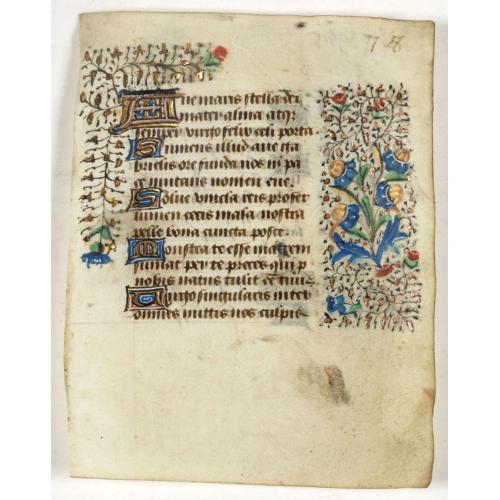 Aue maris stella dei
mater alma atqȝ
semper virgo felix celi porta
Sumens illud aue ga
brielis ore funda nos in pa
ce mutans nomen eue.
Solue vincla reis profer
lumen cecis mala nostra
pelle bona cuncta posce
Monstra te esse matrem
sumat per te preces qui p
nobis natus tulit esse tuus
Virgo singularis inter
omnes mittis nos culpis